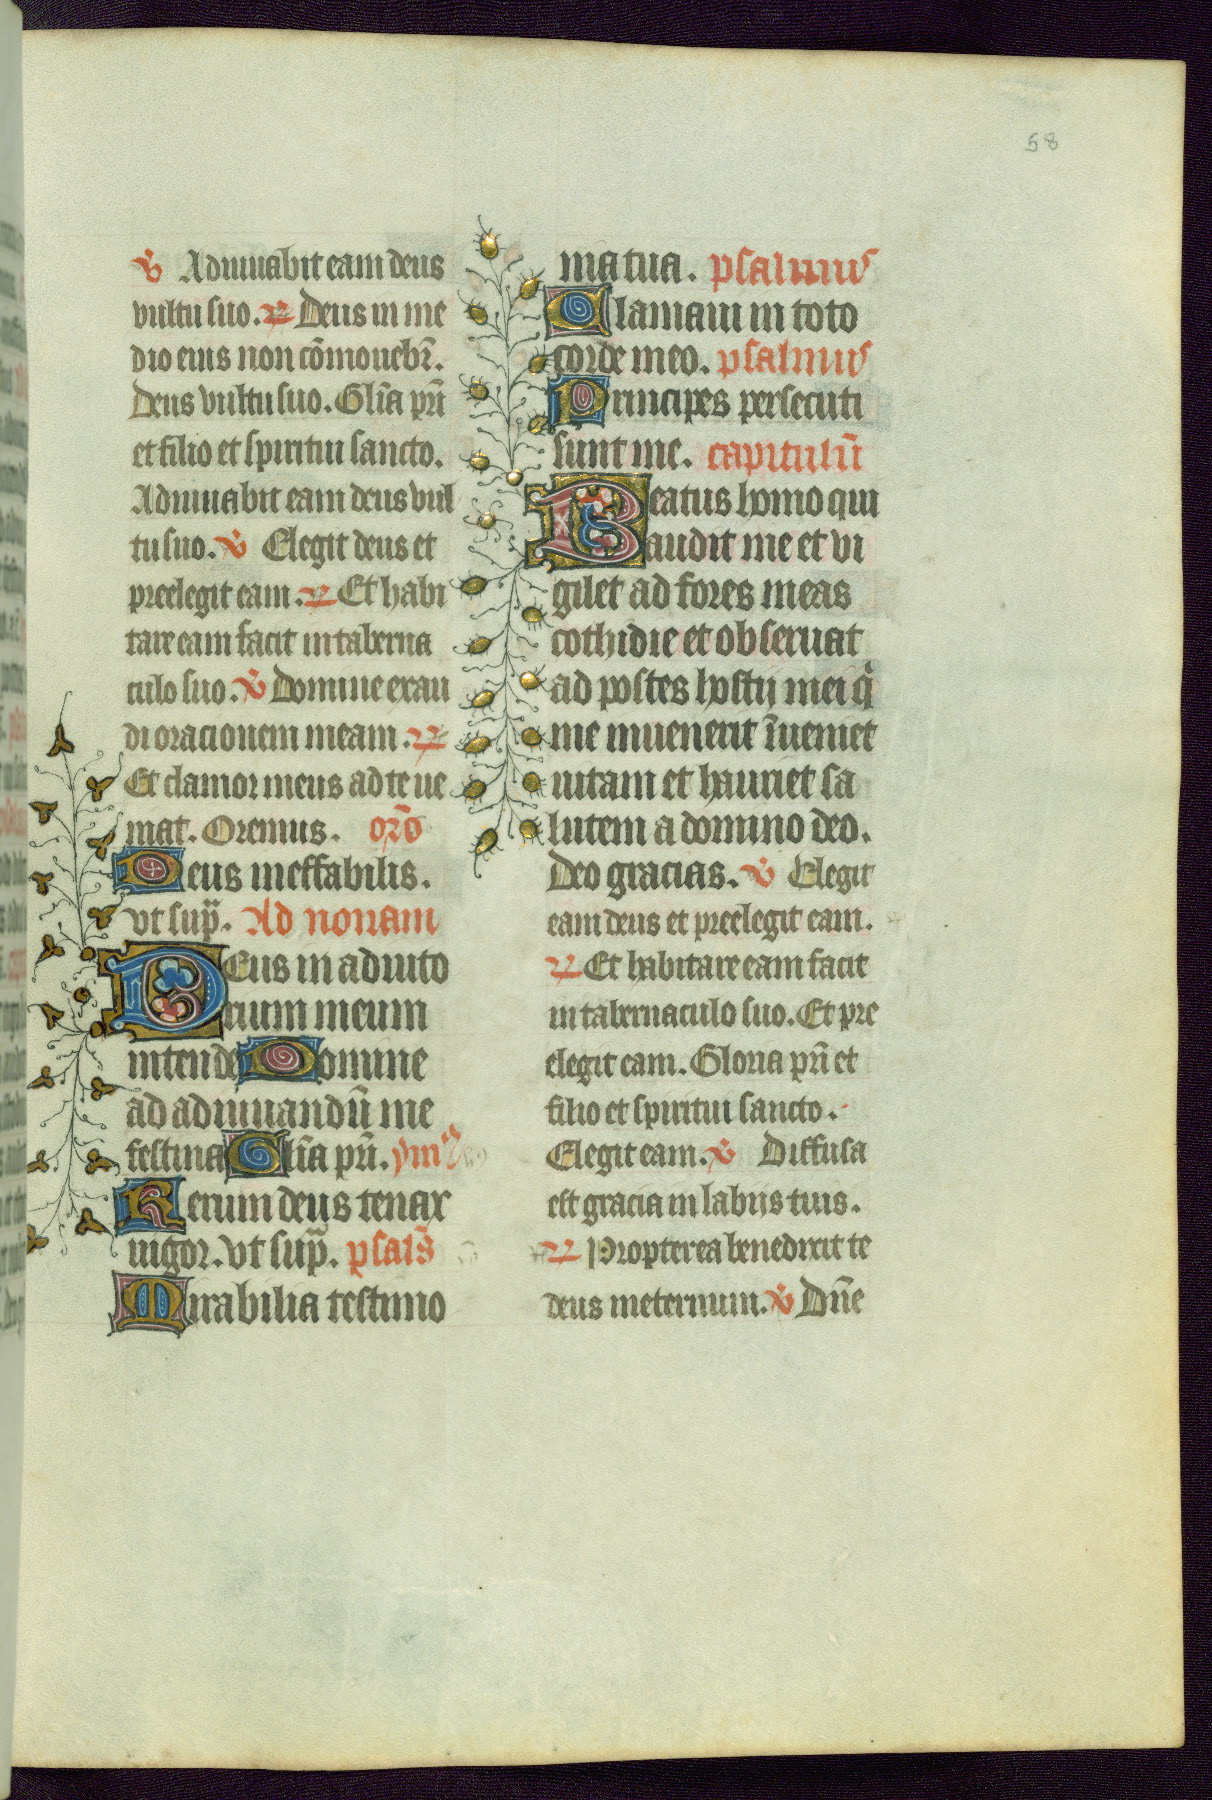 58
℣ Adiuuabit eam deus
vultu suo. ℟ Deus in me
dio eius non cōmouebr̄.
Deus vultu suo. Glīa pr̄i
et filio et spiritui sancto.
Adiuuabit eam deus vul
tu suo. ℣ Elegit deus et
preelegit eam. ℟ Et habi
tare eam facit in taberna
culo suo. ℣ Domine exau
di oracionem meam. ℟
Et clamor meus ad te ue
niat. Oremus. orō
Deus ineffabilis.
vt sup̄. Ad nonam
Deus in adiuto
rium meum
intende Domine
ad adiuuandū me
festina Glīa pr̄i. ymn9
Rerum deus tenax
uigor. vt sup̄. psal̄s
Mirabilia testimo
nia tua. psalmus
Clamaui in toto
corde meo. psalmus
Principes persecuti
sunt me. capitulū
Beatus homo qui
audit me et vi
gilet ad fores meas
cothidie et obseruat
ad postes hostij mei q̇
me inuenerit īueniet
uitam et hauriet sa
lutem a domino deo.
Deo gracias. ℣ Elegit
eam deus et preelegit eam.
℟ Et habitare eam facit
in tabernaculo suo. Et pre
elegit eam. Gloria pr̄i et
filio et spiritui sancto.
Elegit eam. ℣ Diffusa
est gracia in labijs tuis.
℟ Propterea benedixit te
deus ineternum. ℣ Dn̄e